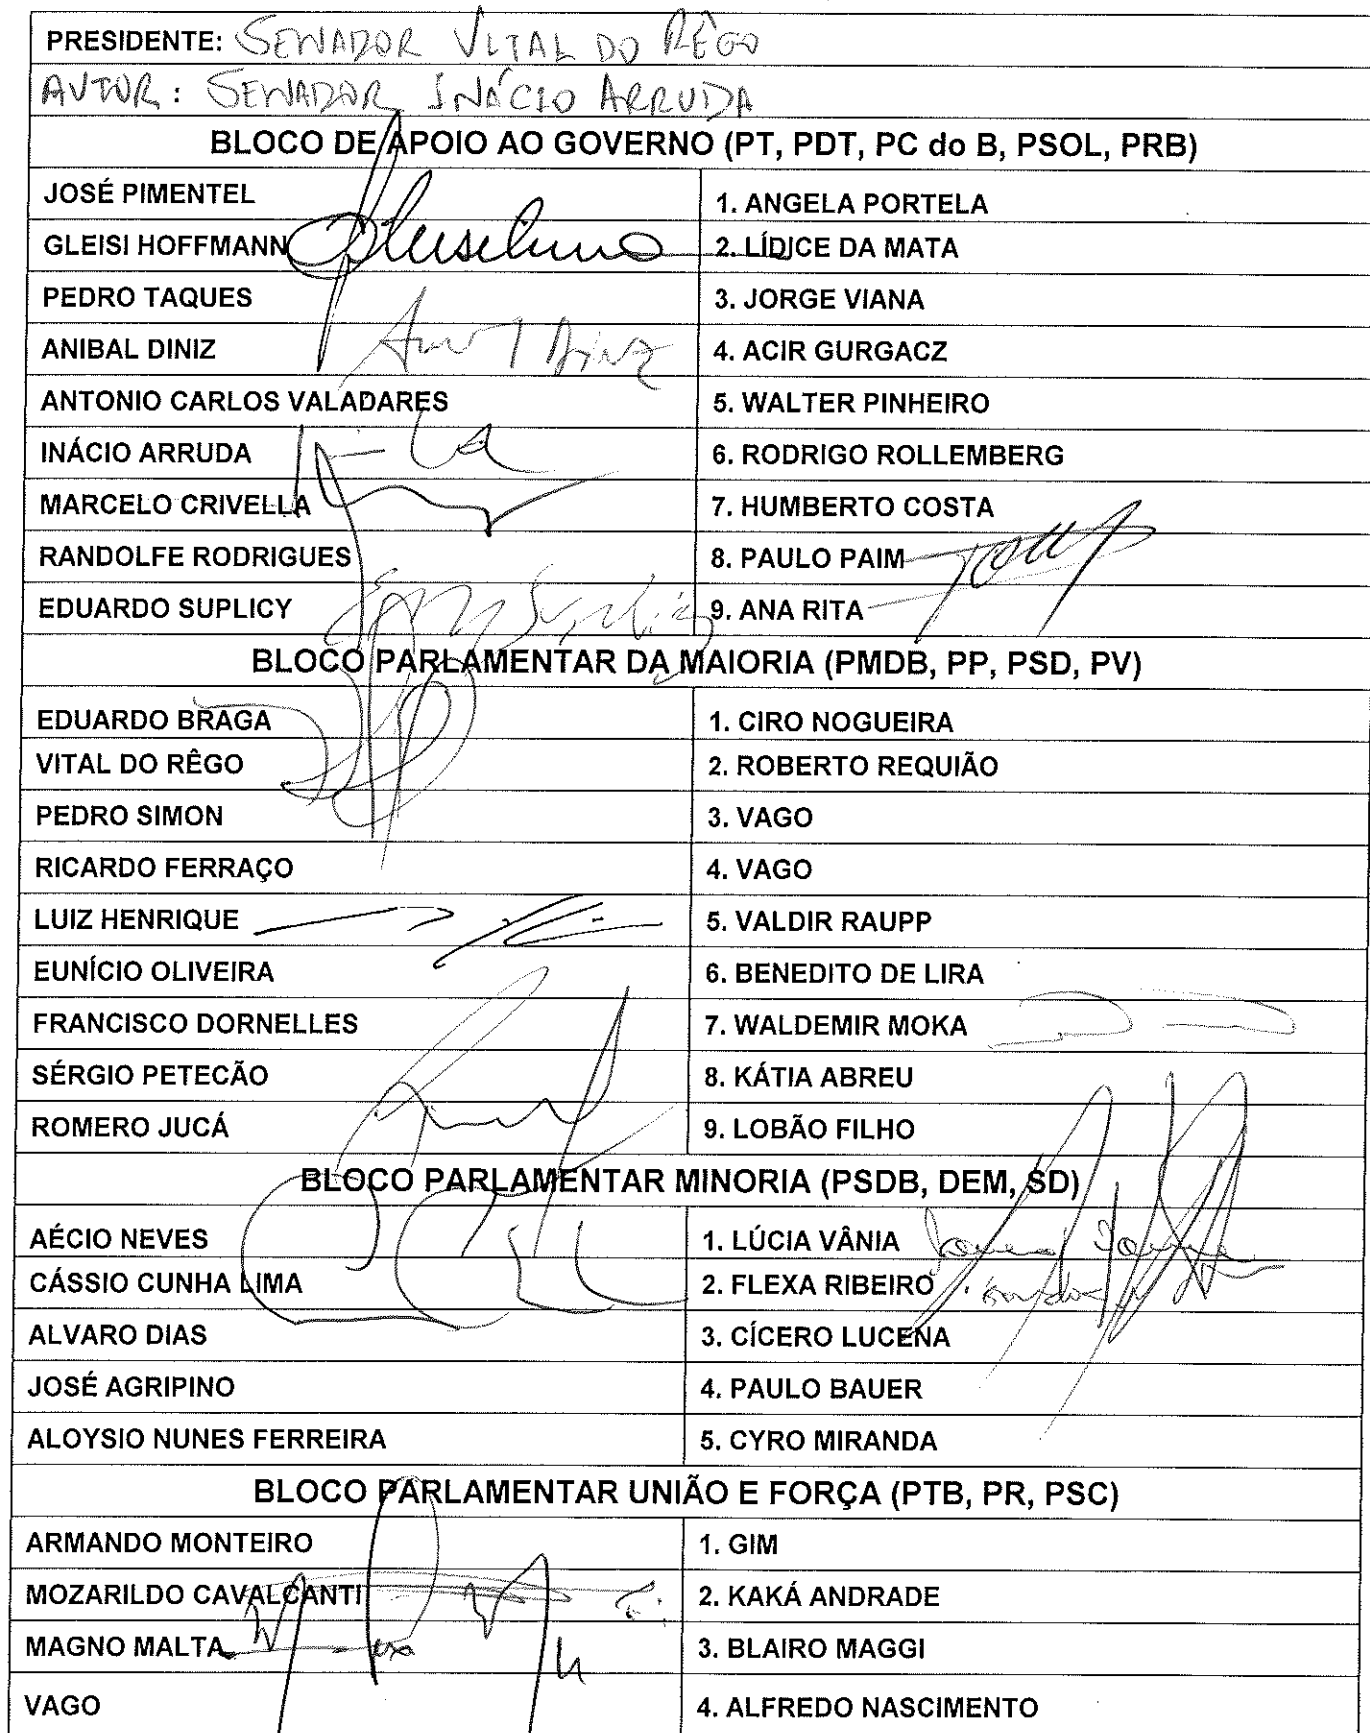 PRESIDENTE: SENADOR VITAL DO RÊGO
AUTOR: SENADOR INÁCIO ARRUDA
BLOCO DE APOIO AO GOVERNO (PT, PDT, PC do B, PSOL, PRB)
JOSÉ PIMENTEL 1. ANGELA PORTELA
GLEISI HOFFMANN 2. LÍDICE DA MATA
PEDRO TAQUES 3. JORGE VIANA
ANIBAL DINIZ 4. ACIR GURGACZ
ANTONIO CARLOS VALADARES 5. WALTER PINHEIRO
INÁCIO ARRUDA 6. RODRIGO ROLLEMBERG
MARCELO CRIVELLA 7. HUMBERTO COSTA
RANDOLFE RODRIGUES 8. PAULO PAIM
EDUARDO SUPLICY 9. ANA RITA
BLOCO PARLAMENTAR DA MAIORIA (PMDB, PP, PSD, PV)
EDUARDO BRAGA 1. CIRO NOGUEIRA
VITAL DO RÊGO 2. ROBERTO REQUIÃO
PEDRO SIMON 3. VAGO
RICARDO FERRAÇO 4. VAGO
LUIZ HENRIQUE 5. VALDIR RAUPP
EUNÍCIO OLIVEIRA 6. BENEDITO DE LIRA
FRANCISCO DORNELLES 7. WALDEMIR MOKA
SÉRGIO PETECÃO 8. KÁTIA ABREU
ROMERO JUCÁ 9. LOBÃO FILHO
BLOCO PARLAMENTAR MINORIA (PSDB, DEM, SD)
AÉCIO NEVES 1. LÚCIA VÂNIA
CÁSSIO CUNHA LIMA 2. FLEXA RIBEIRO
ALVARO DIAS 3. CÍCERO LUCENA
JOSÉ AGRIPINO 4. PAULO BAUER
ALOYSIO NUNES FERREIRA 5. CYRO MIRANDA
BLOCO PARLAMENTAR UNIÃO E FORÇA (PTB, PR, PSC)
ARMANDO MONTEIRO 1. GIM
MOZARILDO CAVALCANTI 2. KAKÁ ANDRADE
MAGNO MALTA 3. BLAIRO MAGGI
VAGO 4. ALFREDO NASCIMENTO